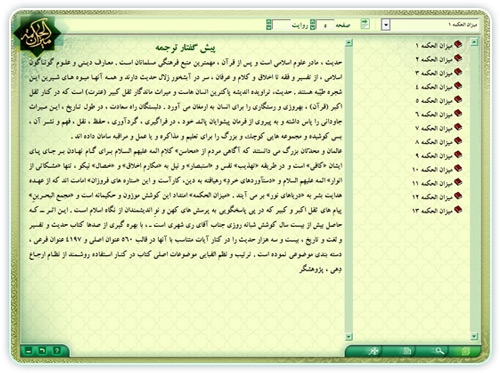 میزان الحکمه ۱
صفحه ۵ روایت
میزان الحکمه
پیش گفتار ترجمه
حدیث ، مادر علوم اسلامی است و پس از قرآن ، مهمترین منبع فرهنگی مسلمانان است . معارف دینی و علوم گوناگون
اسلامی ، از تفسیر و فقه تا اخلاق و کلام و عرفان ، سر در آبشخور زلال حدیث دارند و همه آنها میوه های شیرین این
شجره طیبه هستند . حدیث، تراویده اندیشه پاکترین انسان هاست و میراث ماندگار ثقل کبیر (عترت) است که در کنار ثقل
اکبر (قرآن) ، بهروزی و رستگاری را برای انسان به ارمغان می آورد . دلبستگان راه سعادت ، در طول تاریخ ، این میراث
جاودانی را پاس داشته و به پیروی از فرمان پیشوایان پاک خود ، در فراگیری ، گردآوری ، حفظ ، نقل ، فهم و نشر آن ،
بسی کوشیده و مجموعه هایی کوچک و بزرگ را برای تعلیم و مذاکره و یا عمل و مراقبه سامان داده اند .
عالمان و محدثان بزرگ می دانستند که آگاهی مردم از «محاسن» کلام ائمه علیهم السلام برای گام نهادن بر جای پای
ایشان «کافی» است و در طریقه «تهذیب» نفس و «استبصار» و نیل به «مکارم اخلاق» و «خصال» نیکو ، تنها «مشکاتی از
انوار» ائمه علیهم السلام و «دستآوردهای خرد» رهیافته به دین، کارآست و این «ستاره های فروزان» امامت اند که از عهده
هدایت بشر به «دریاهای نور» بر می آیند . «میزان الحکمه» امتداد این کوشش موزون و حکیمانه است و «مجمع البحرین»
پیام های ثقل اکبر و کبیر که در پی پاسخگویی به پرسش های کهن و نو اندیشمندان از نگاه اسلام است . این اثر ـ که
حاصل بیش از بیست سال کوشش شبانه روزی جناب آقای ری شهری است ـ ، با بهره گیری از صدها کتاب حدیث و تفسیر
و لغت و تاریخ ، بیست و سه هزار حدیث را در کنار آیات متناسب با آنها در قالب ۵۶۰ عنوان اصلی و ۴۱۹۷ عنوان فرعی ،
دسته بندی موضوعی نموده است . ترتیب و نظم الفبایی موضوعات اصلی کتاب در کنار استفاده روشمند از نظام ارجاع
دهی ، پژوهشگر
میزان الحکمه ۱
میزان الحکمه ۲
میزان الحکمه ۳
میزان الحکمه ۴
میزان الحکمه ۵
میزان الحکمه ۶
میزان الحکمه ۷
میزان الحکمه ۸
میزان الحکمه ۹
میزان الحکمه ۱۰
میزان الحکمه ۱۱
میزان الحکمه ۱۲
میزان الحکمه ۱۳